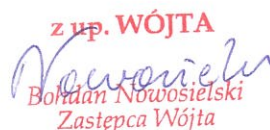 z up. WÓJTA
Nowosielski
Bohdan Nowosielski
Zastępca Wójta